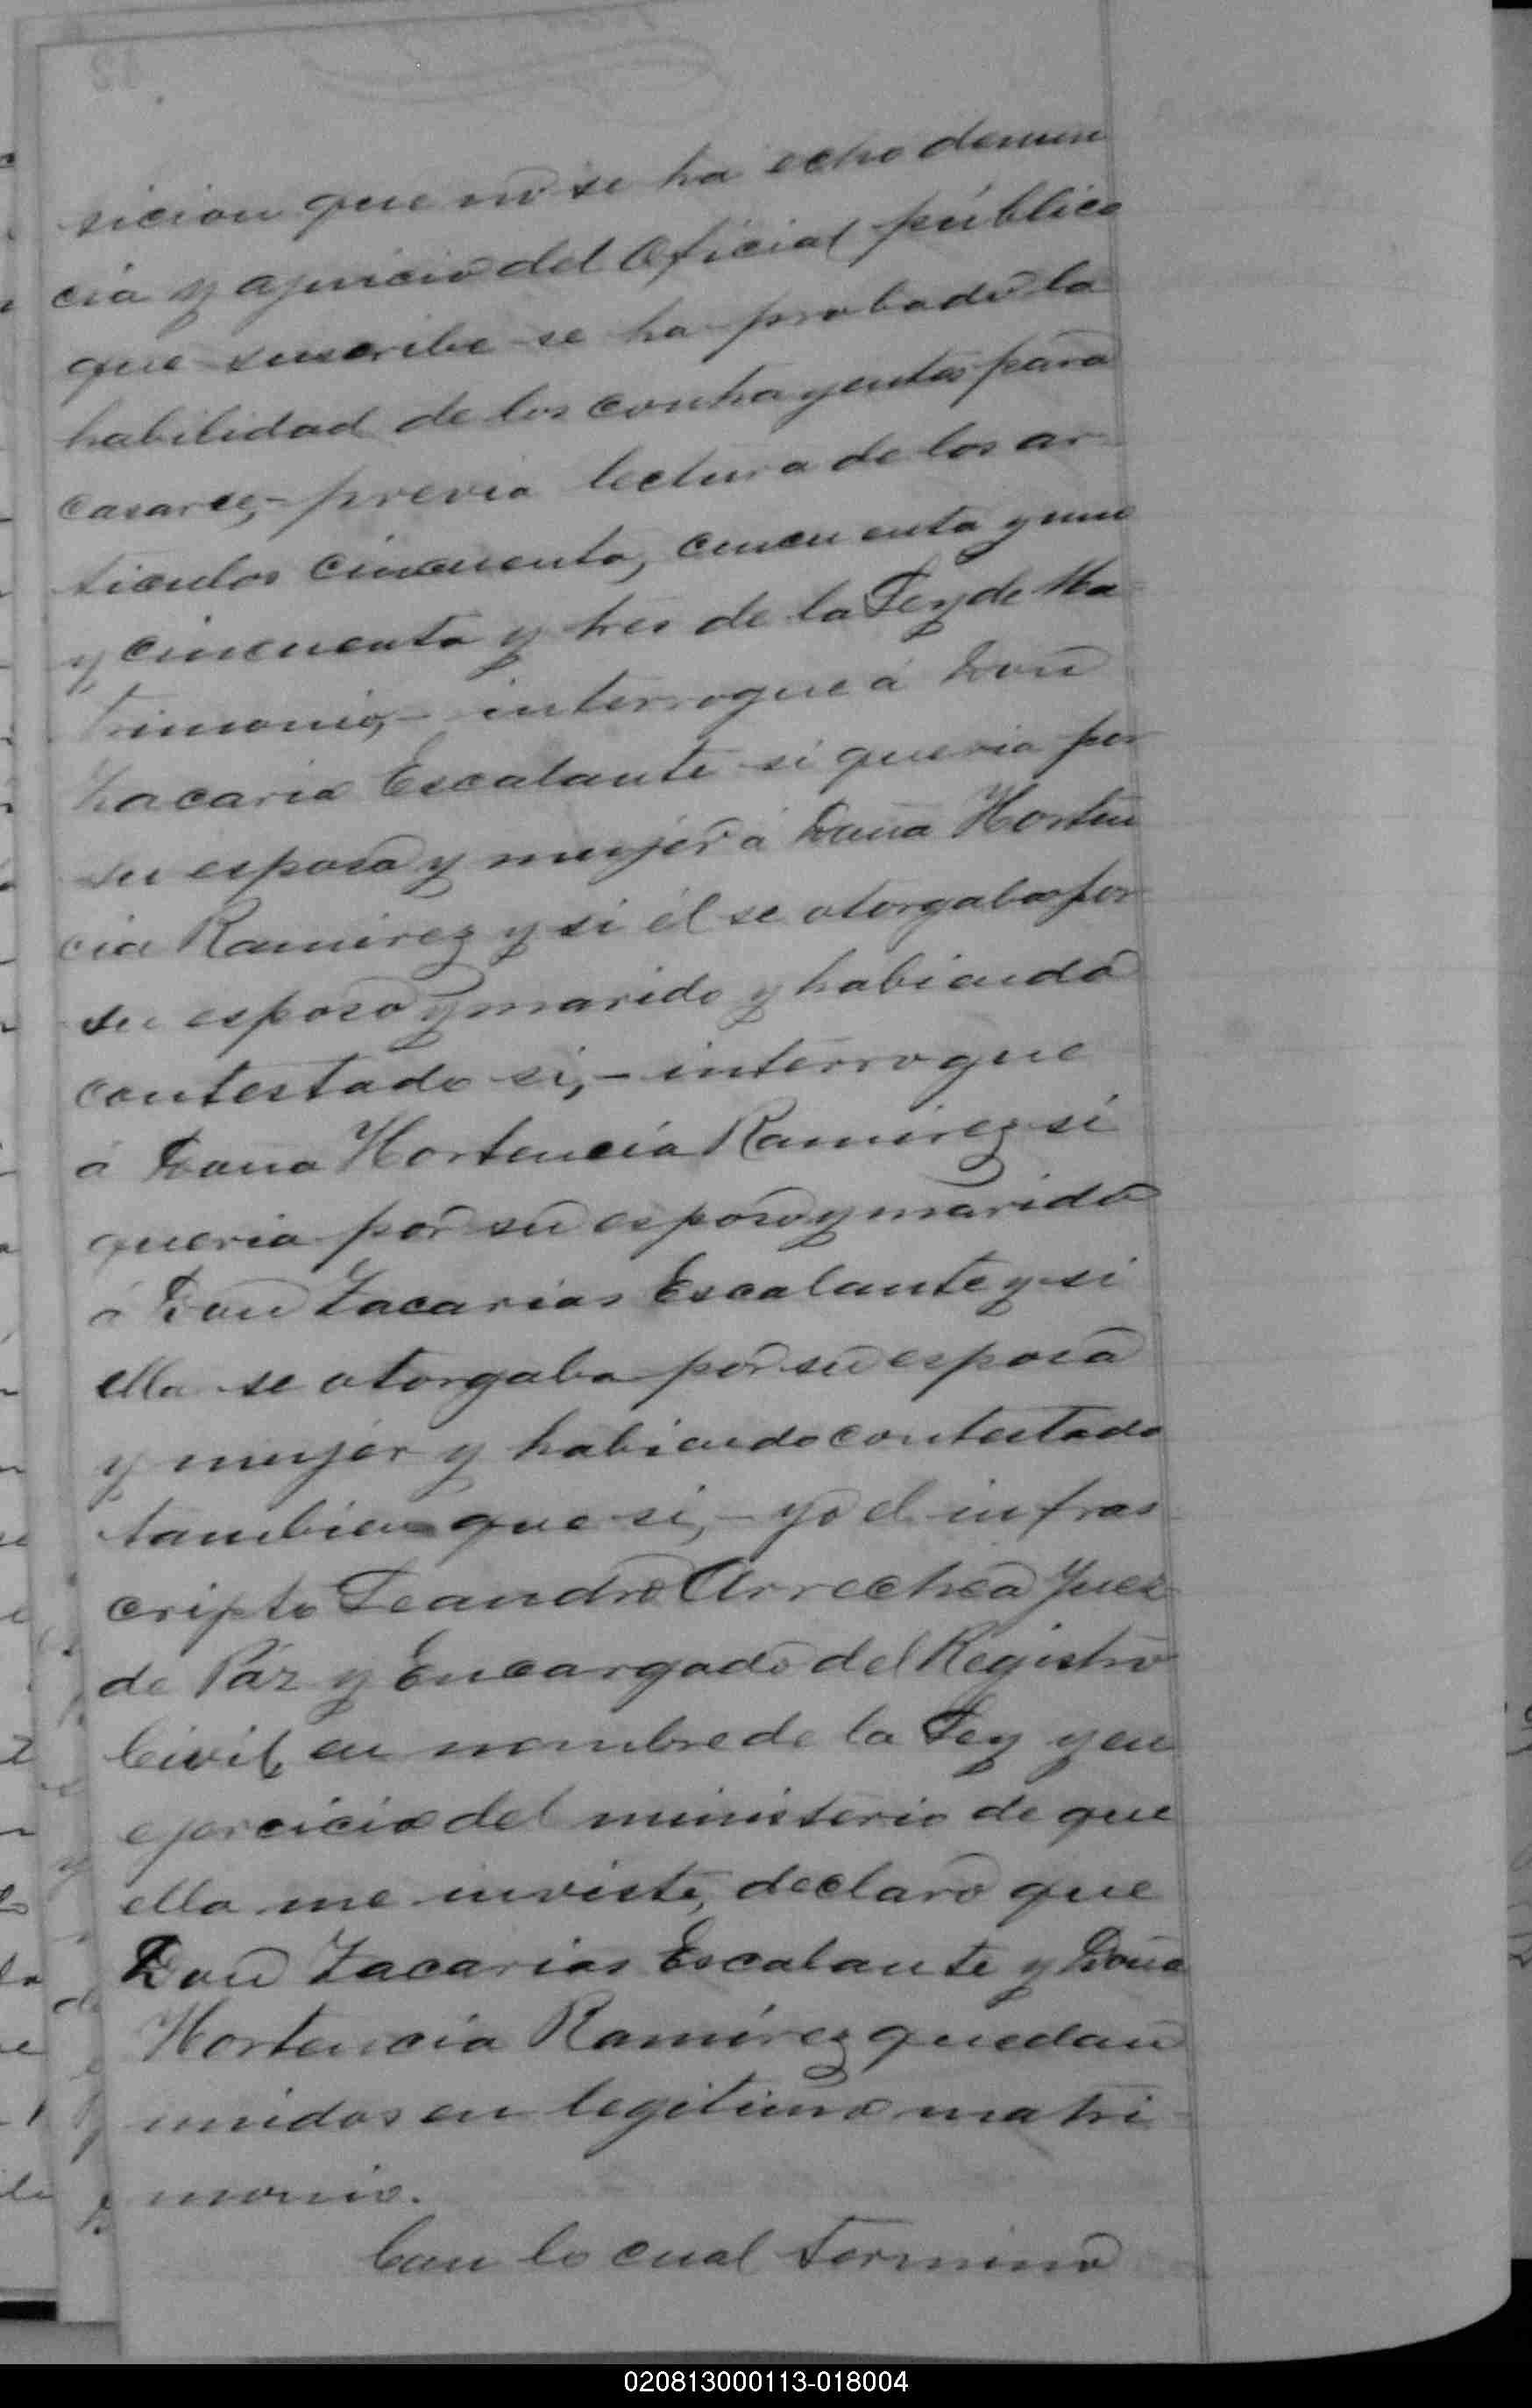 sicion que no se ha echo denun
cia y ajuicio del Oficial público
que suscribe se ha probado la
habilidad de los contrayentes para
casarse,- previa lectura de los ar-
ticulos cincuenta, cincuenta y uno
y cincuenta y tres de la Ley de Ma-
trimonio,- interrogue á Don
Zacarias Escalante si queria por
su esposa y mujer á Doña Horten
cia Ramirez y si él se otorgaba por
su esposo y marido y habiendo
contestado si,- interrogue
á Doña Hortencia Ramirez si
queria por su esposo y marido
á Don Zacarias Escalante y si
ella se otorgaba por su esposa
y mujer y habiendo contestado
tambien que si,- yo el infras-
cripto Leandro Arrechea Juez
de Páz y Encargado del Registro
Civil, en nombre de la Ley y en
ejercicio del ministerio de que
ella me inviste, declaro que
Don Zacarias Escalante y Doña
Hortencia Ramirez quedan
unidos en legitimo matri-
monio.
Con lo cual termino
020813000113-018004